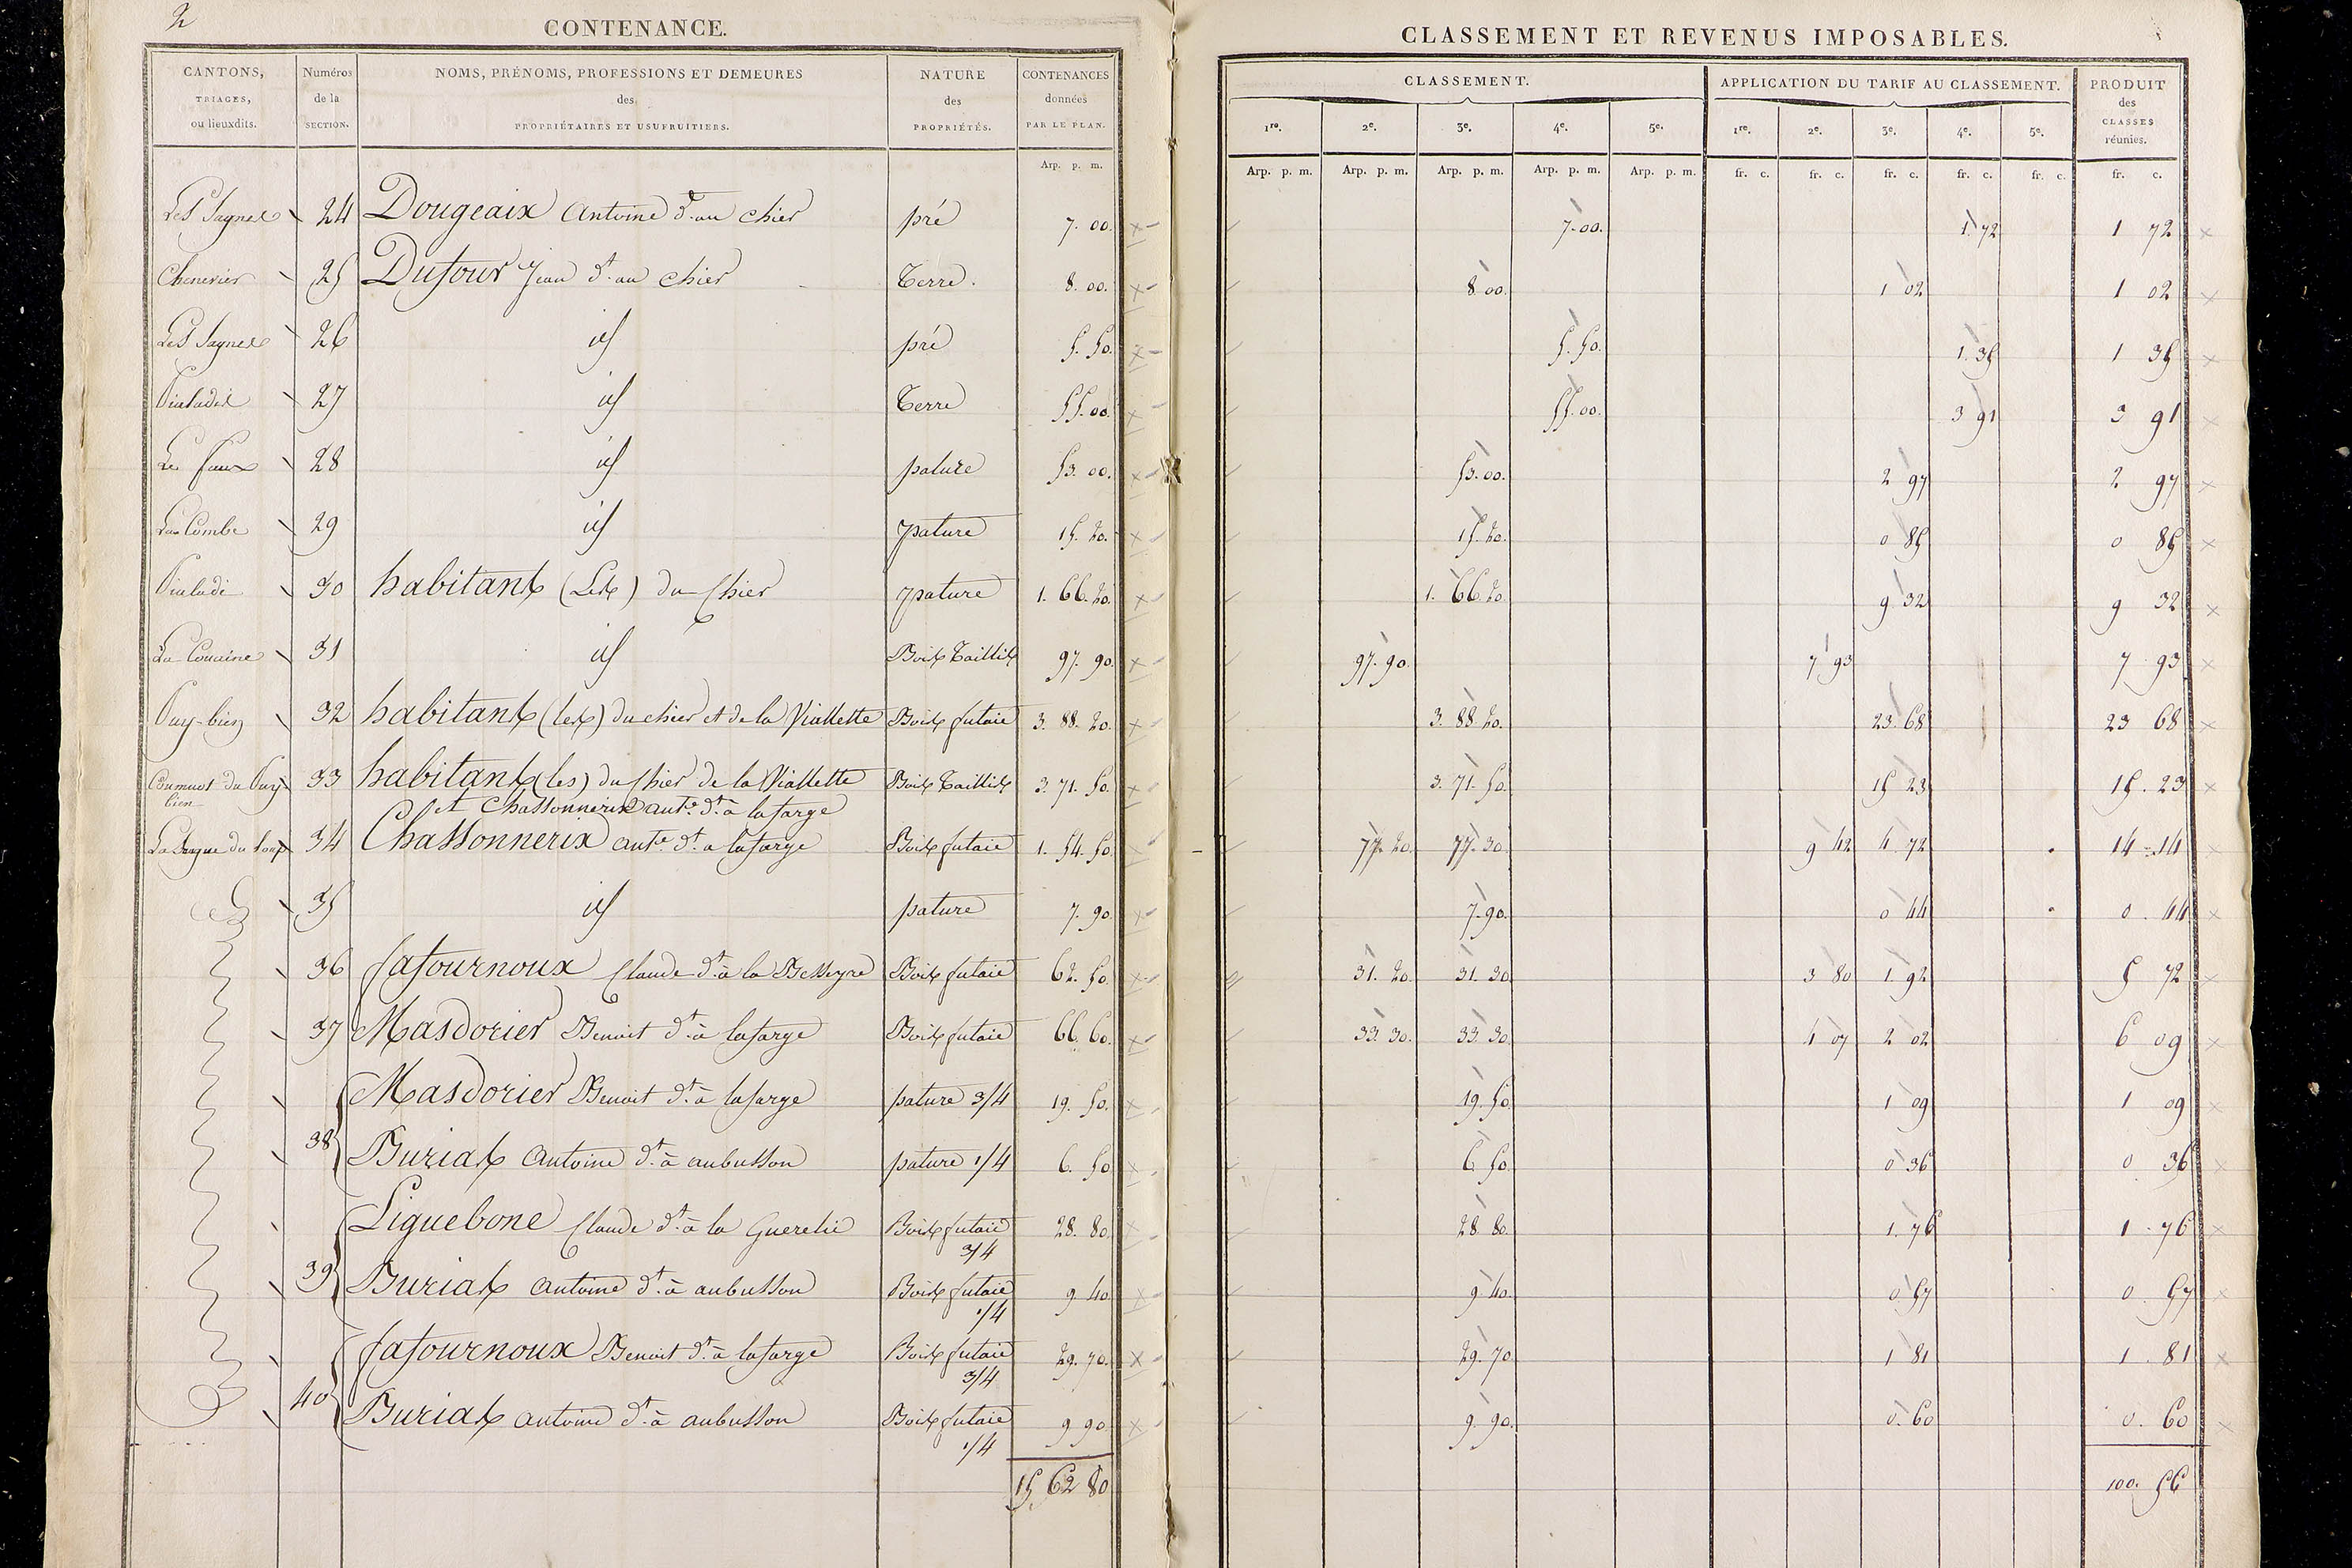 2
CONTENANCE.
CANTONS, TRIAGES, ou lieuxdits. Numéros de la SECTION. NOMS, PRÉNOMS, PROFESSIONS ET DEMEURES des PROPRIÉTAIRES ET USUFRUITIERS. NATURE des PROPRIÉTÉS. CONTENANCES données PAR LE PLAN.
Arp. p. m.
CLASSEMENT ET REVENUS IMPOSABLES.
CLASSEMENT. APPLICATION DU TARIF AU CLASSEMENT. PRODUIT des CLASSES réunies.
1re. 2e. 3e. 4e. 5e. 1re. 2e. 3e. 4e. 5e.
Arp. p. m. Arp. p. m. Arp. p. m. Arp. p. m. Arp. p. m. fr. c. fr. c. fr. c. fr. c. fr. c. fr. c.
Les Sagnes 24 Dougeaix Antoine dt. au chier pré 7. 00. 7. 00. 1. 72 1 72
Chenevier 25 Dufour Jean dt. au chier Terre. 8. 00. 8 00. 1 02 1 02
Les Sagnes 26 id pré 5. 50. 5. 50. 1. 35 1 35
27 id Terre 55. 00. 55. 00. 3 91 3 91
28 id pature 53. 00. 53. 00. 2 97 2 97
La Combe 29 id pature 15. 20. 15. 20. 0 85 0 85
30 habitants (Les) du Chier pature 1. 66. 20. 1. 66. 20. 9 32 9 32
31 id Bois Taillis 97. 90. 97. 90. 7 93 7 93
Puy-bien 32 habitants (les) du chier et de la Viallette Bois futaie 3. 88. 20. 3. 88. 20. 23 68 23 68
Communs du Puy bien 33 habitants (les) du Chier de la Viallette Bois Taillis 3. 71. 50. 3. 71. 50. 15 23 15. 23
et Chassonnerix ante. dt. à lafarge
34 Chassonnerix ante. dt. a lafarge Bois futaie 1. 54. 50. 77. 20. 77. 30. 9 42 4. 72 14 = 14
35 id pature 7. 90. 7. 90. 0 44 0. 44
36 fafournoux Claude dt. à la Besseyre Bois futaie 62. 50. 31. 20. 31. 30. 3 80 1. 92 5 72
37 Masdorier Benoit dt. à lafarge Bois futaie 66. 60. 33. 30. 33. 30. 4 07 2 02 6 09
Masdorier Benoit dt. à lafarge pature 3/4 19. 50. 19. 50. 1 09 1 09
38 Buriat Antoine dt. à aubusson pature 1/4 6. 50 6. 50. 0 36 0. 36
Liguebone Claude dt. à la Guerelie Bois futaie 3/4 28. 80. 28. 80. 1. 76 1. 76
39 Buriat Antoine dt. à aubusson Bois futaie 1/4 9 40. 9 40. 0. 57 0. 57
fafournoux Benoit dt. à lafarge Bois futaie 3/4 29. 70. 29. 70. 1 81 1. 81
40 Buriat antoine dt. à aubusson Bois futaie 1/4 9 90. 9. 90. 0. 60 0. 60
15, 62 80 100. 56